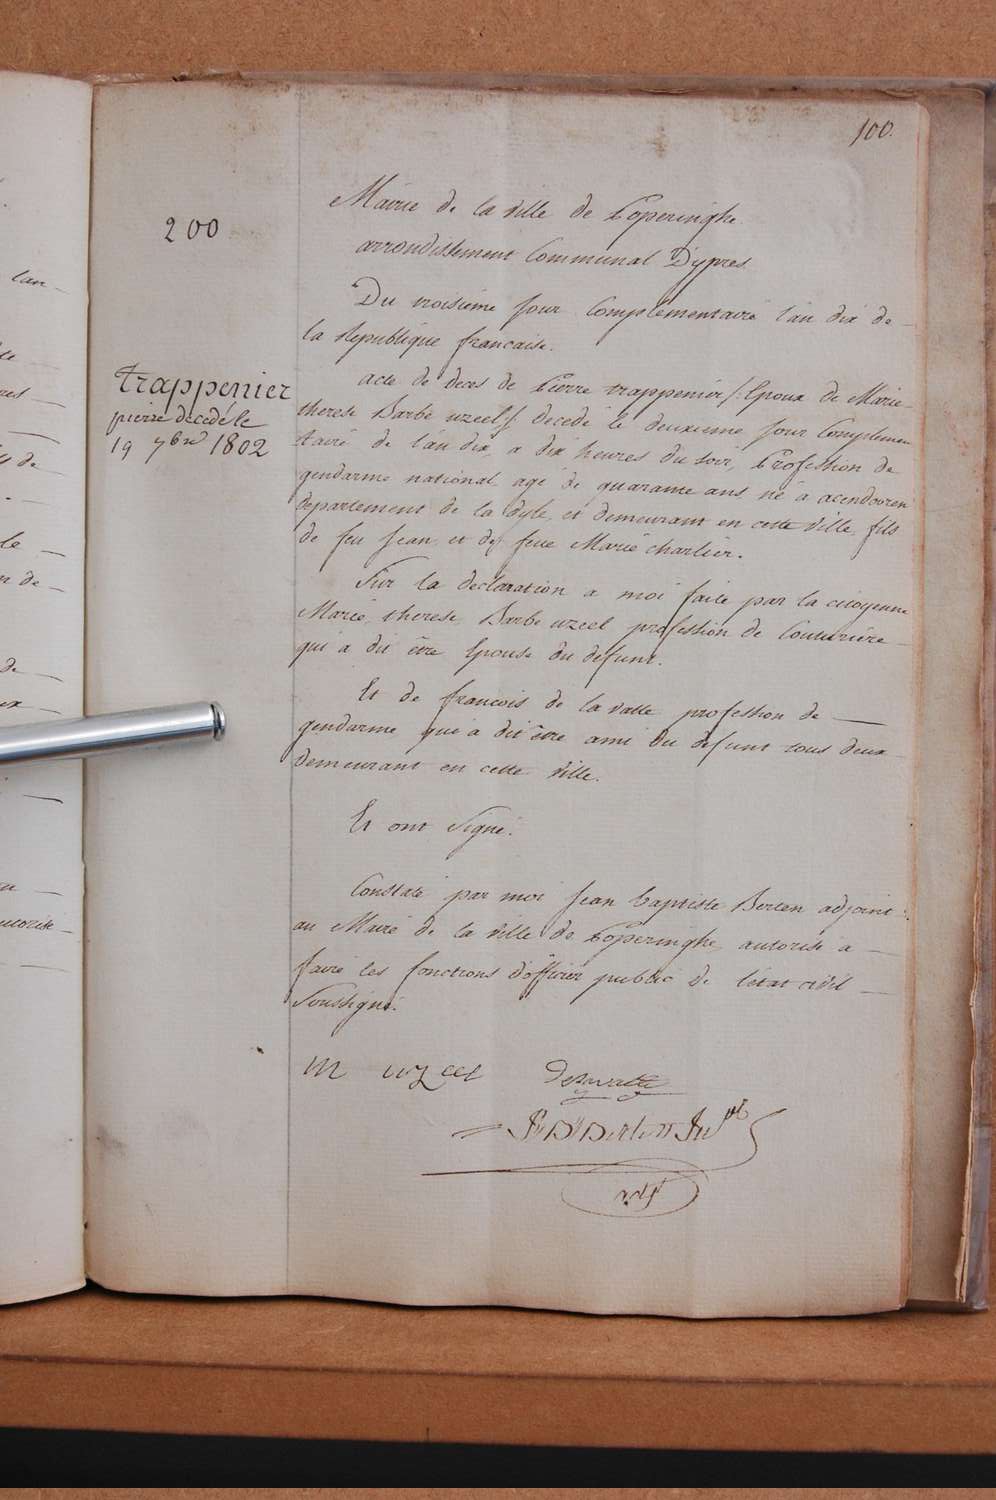 100.
200
Mairie de la ville de Poperinghe
arrondissement Communal D'ypres
Du troisieme jour Complementaire l'an dix de
la Republique francaise.
trappenier
pierre decedé le
19 7bre 1802
acte de deces de Pierre trappenier /: Epoux de Marie
therese Barbe uzeel :/ decedé le deuxieme jour Complemen
taire de l'an dix, a dix heures du soir, Profession de
gendarme national agé de quarante ans né a acendooren
Departement de la dyle, et demeurant en cette ville, fils
de feu Jean et de feue Marie charlier.
Sur la declaration a moi faite par la citoyenne
Marie therese Barbe uzeel profession de Couturiere
qui a dit être Epouse du defunt.
Et de francois de la valle profession de
gendarme qui a dit être ami du defunt tous deux
demeurant en cette ville.
Et ont signé.
Constaté par moi Jean baptiste Berten adjoint
au Maire de la ville de Poperinghe, autorisé a
faire les fonctions d'officier public de l'état civil
Soussigné.
M uyzeel
Delavalle
Berten
lan
de
res
de
le
n de
de
ux
autorisé